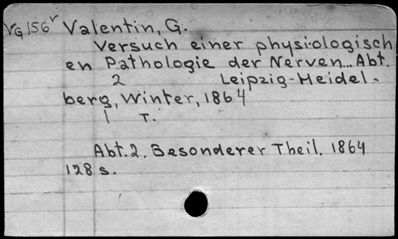 VG156 Valentin, G.
Versuch einer physiologisch
en Pathologie der Nerven... Abt.
2 Leipzig-Heidel-
berg, Winter, 1864
1 T.
Abt.2. Besonderer Theil. 1864
128 s.